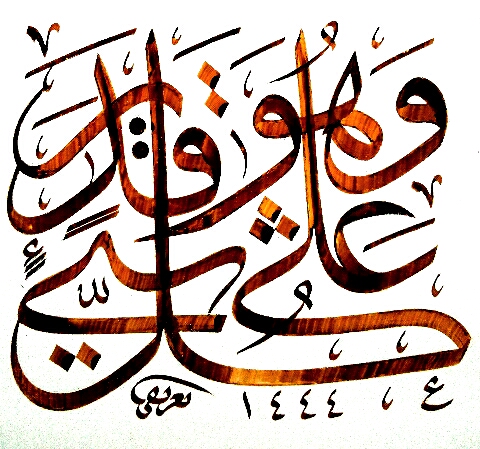 وهو على كل شيء قدير
١٤٤٤